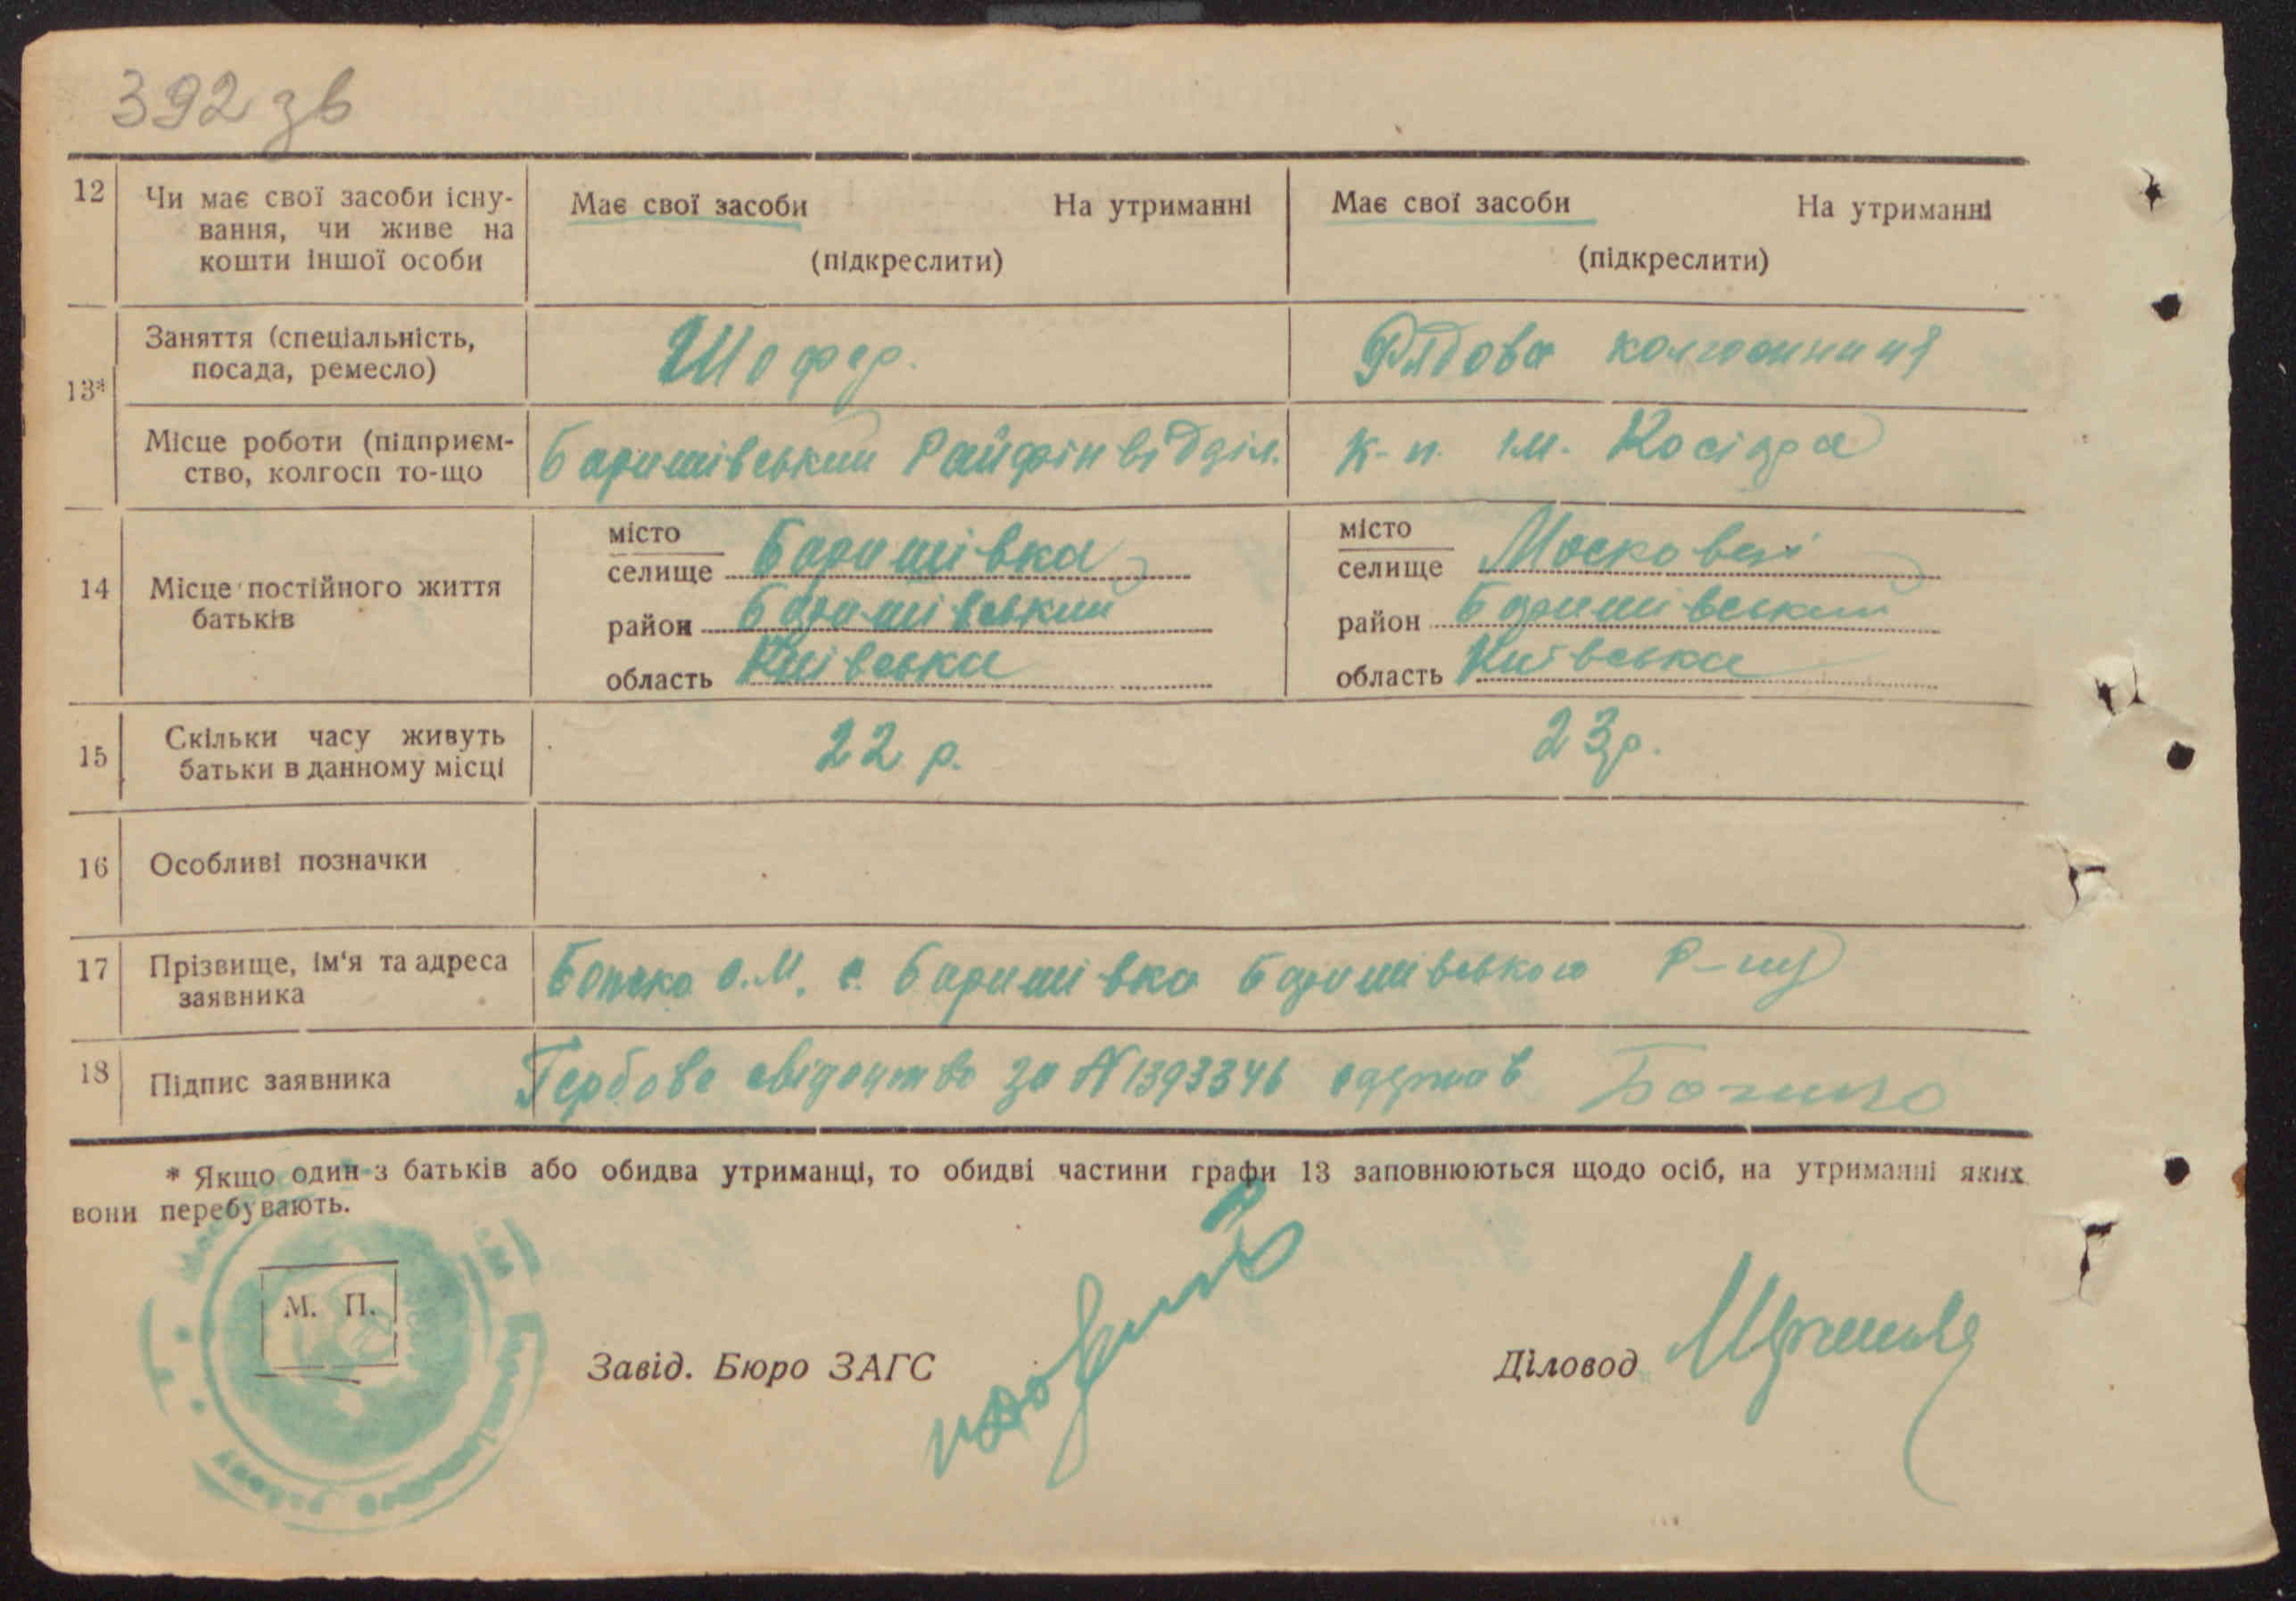 392 зв
12 Чи має свої засоби існу-
вання, чи живе на
кошти іншої особи
Має свої засоби На утриманні
(підкреслити)
Має свої засоби На утриманні
(підкреслити)
13*
Заняття (спеціальність,
посада, ремесло)
Шофер.
Рядова колгоспниця
Місце роботи (підприєм-
ство, колгосп то-що
Баришівський Райфінвідділ.
к-п. ім. Косіора
14 Місце постійного життя
батьків
місто
селище Баришівка
район Баришівський
область Київська
місто
селище Московці
район Баришівський
область Київська
15 Скільки часу живуть
батьки в данному місці
22 р.
23 р.
16 Особливі позначки
17 Прізвище, ім‘я та адреса
заявника
О.М. с. Баришівка Баришівського Р-ну
18 Підпис заявника
Гербове свідоцтво за № 1393346 одержав
* Якщо один з батьків або обидва утриманці, то обидві частини графи 13 заповнюються щодо осіб, на утриманні яких
вони перебувають.
М. П.
Завід. Бюро ЗАГС
Діловод